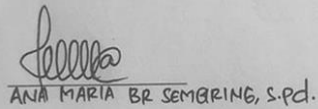 ANA MARIA BR SEMBIRING, S.Pd.